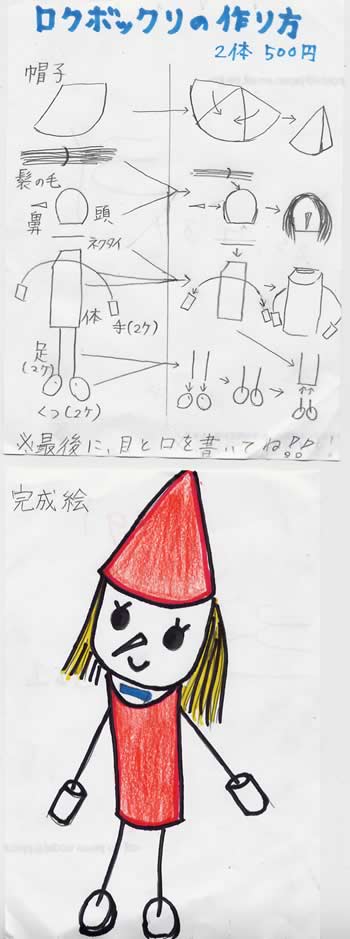 ロクボックリの作り方
2体 500円
帽子
髪の毛
鼻
頭
ネクタイ
体
手(2ケ)
足
(2ケ)
くつ(2ケ)
※最後に、目と口を書いてね!!
完成絵